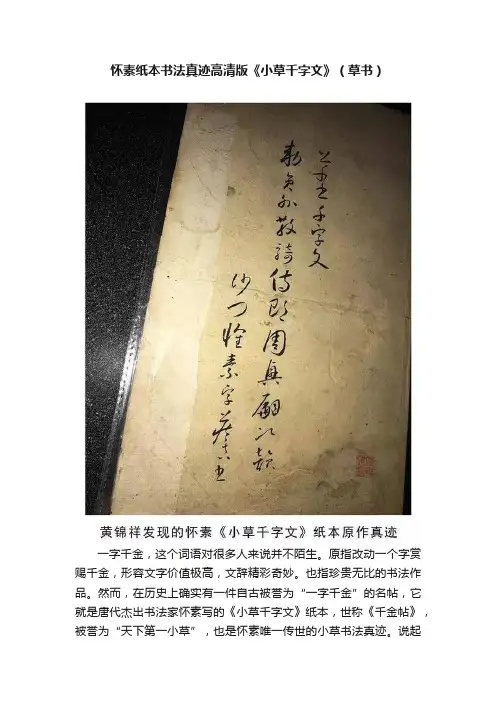 怀素纸本书法真迹高清版《小草千字文》（草书）
千字文
勅員外散騎侍郎周興嗣次韻
沙门懷素字藏真書
黄锦祥发现的怀素《小草千字文》纸本原作真迹
一字千金，这个词语对很多人来说并不陌生。原指改动一个字赏
赐千金，形容文字价值极高，文辞精彩奇妙。也指珍贵无比的书法作
品。然而，在历史上确实有一件自古被誉为“一字千金”的名帖，它
就是唐代杰出书法家怀素写的《小草千字文》纸本，世称《千金帖》，
被誉为“天下第一小草”，也是怀素唯一传世的小草书法真迹。说起